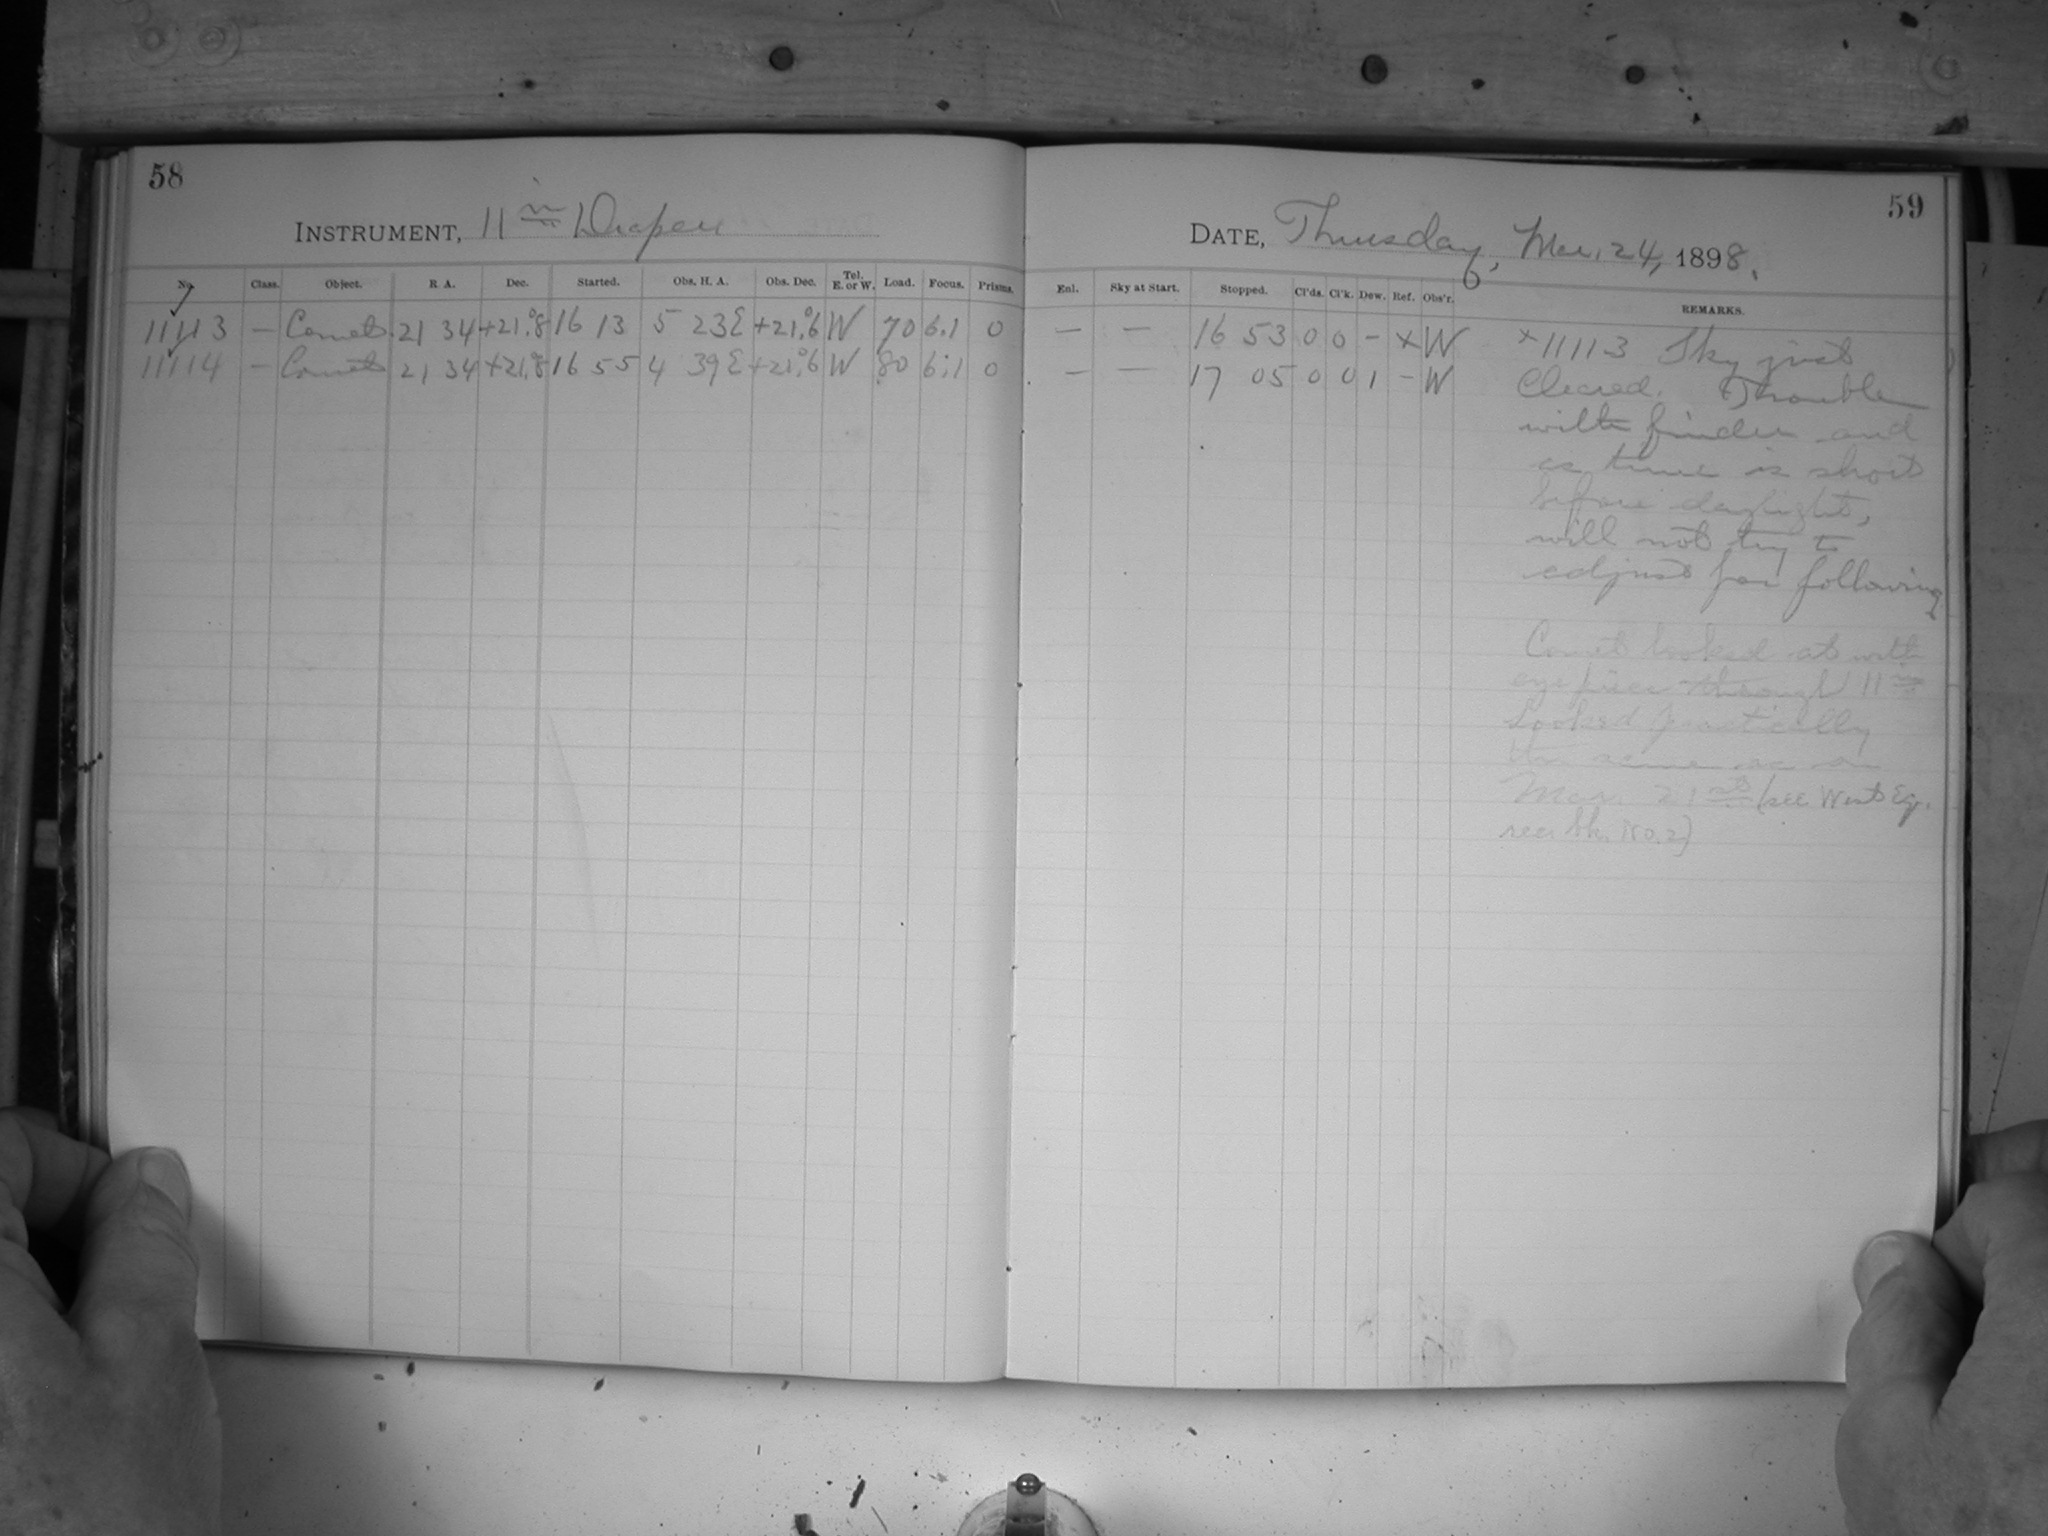 58
INSTRUMENT, 11 in Draper
No. Class. Object. R. A. Dec. Started. Obs. H. A. Obs. Dec. Tel. E. or W. Load. Focus. Prisms.
11113 — Comet 21 34 +21.°8 16 13 5 23 E +21.°6 W 70 6.1 0
11114 — Comet 21 34 +21.°8 16 55 4 39 E +21.°6 W 80 6.1 0
59
DATE, Thursday, Mar. 24, 1898.
Enl. Sky at Start. Stopped. Cl'ds. Cl'k. Dew. Ref. Obs'r. REMARKS.
— — 16 53 0 0 - x W x 11113 Sky just
— — 17 05 0 0 1 - W Cleared. Trouble
with finder and
as time is short
before daylight,
will not try to
adjust for following
Comet looked at with
eye piece through 11 in
Looked practically
the same as on
Mar. 21st (see West Eq.
rec. bk. No. 2)